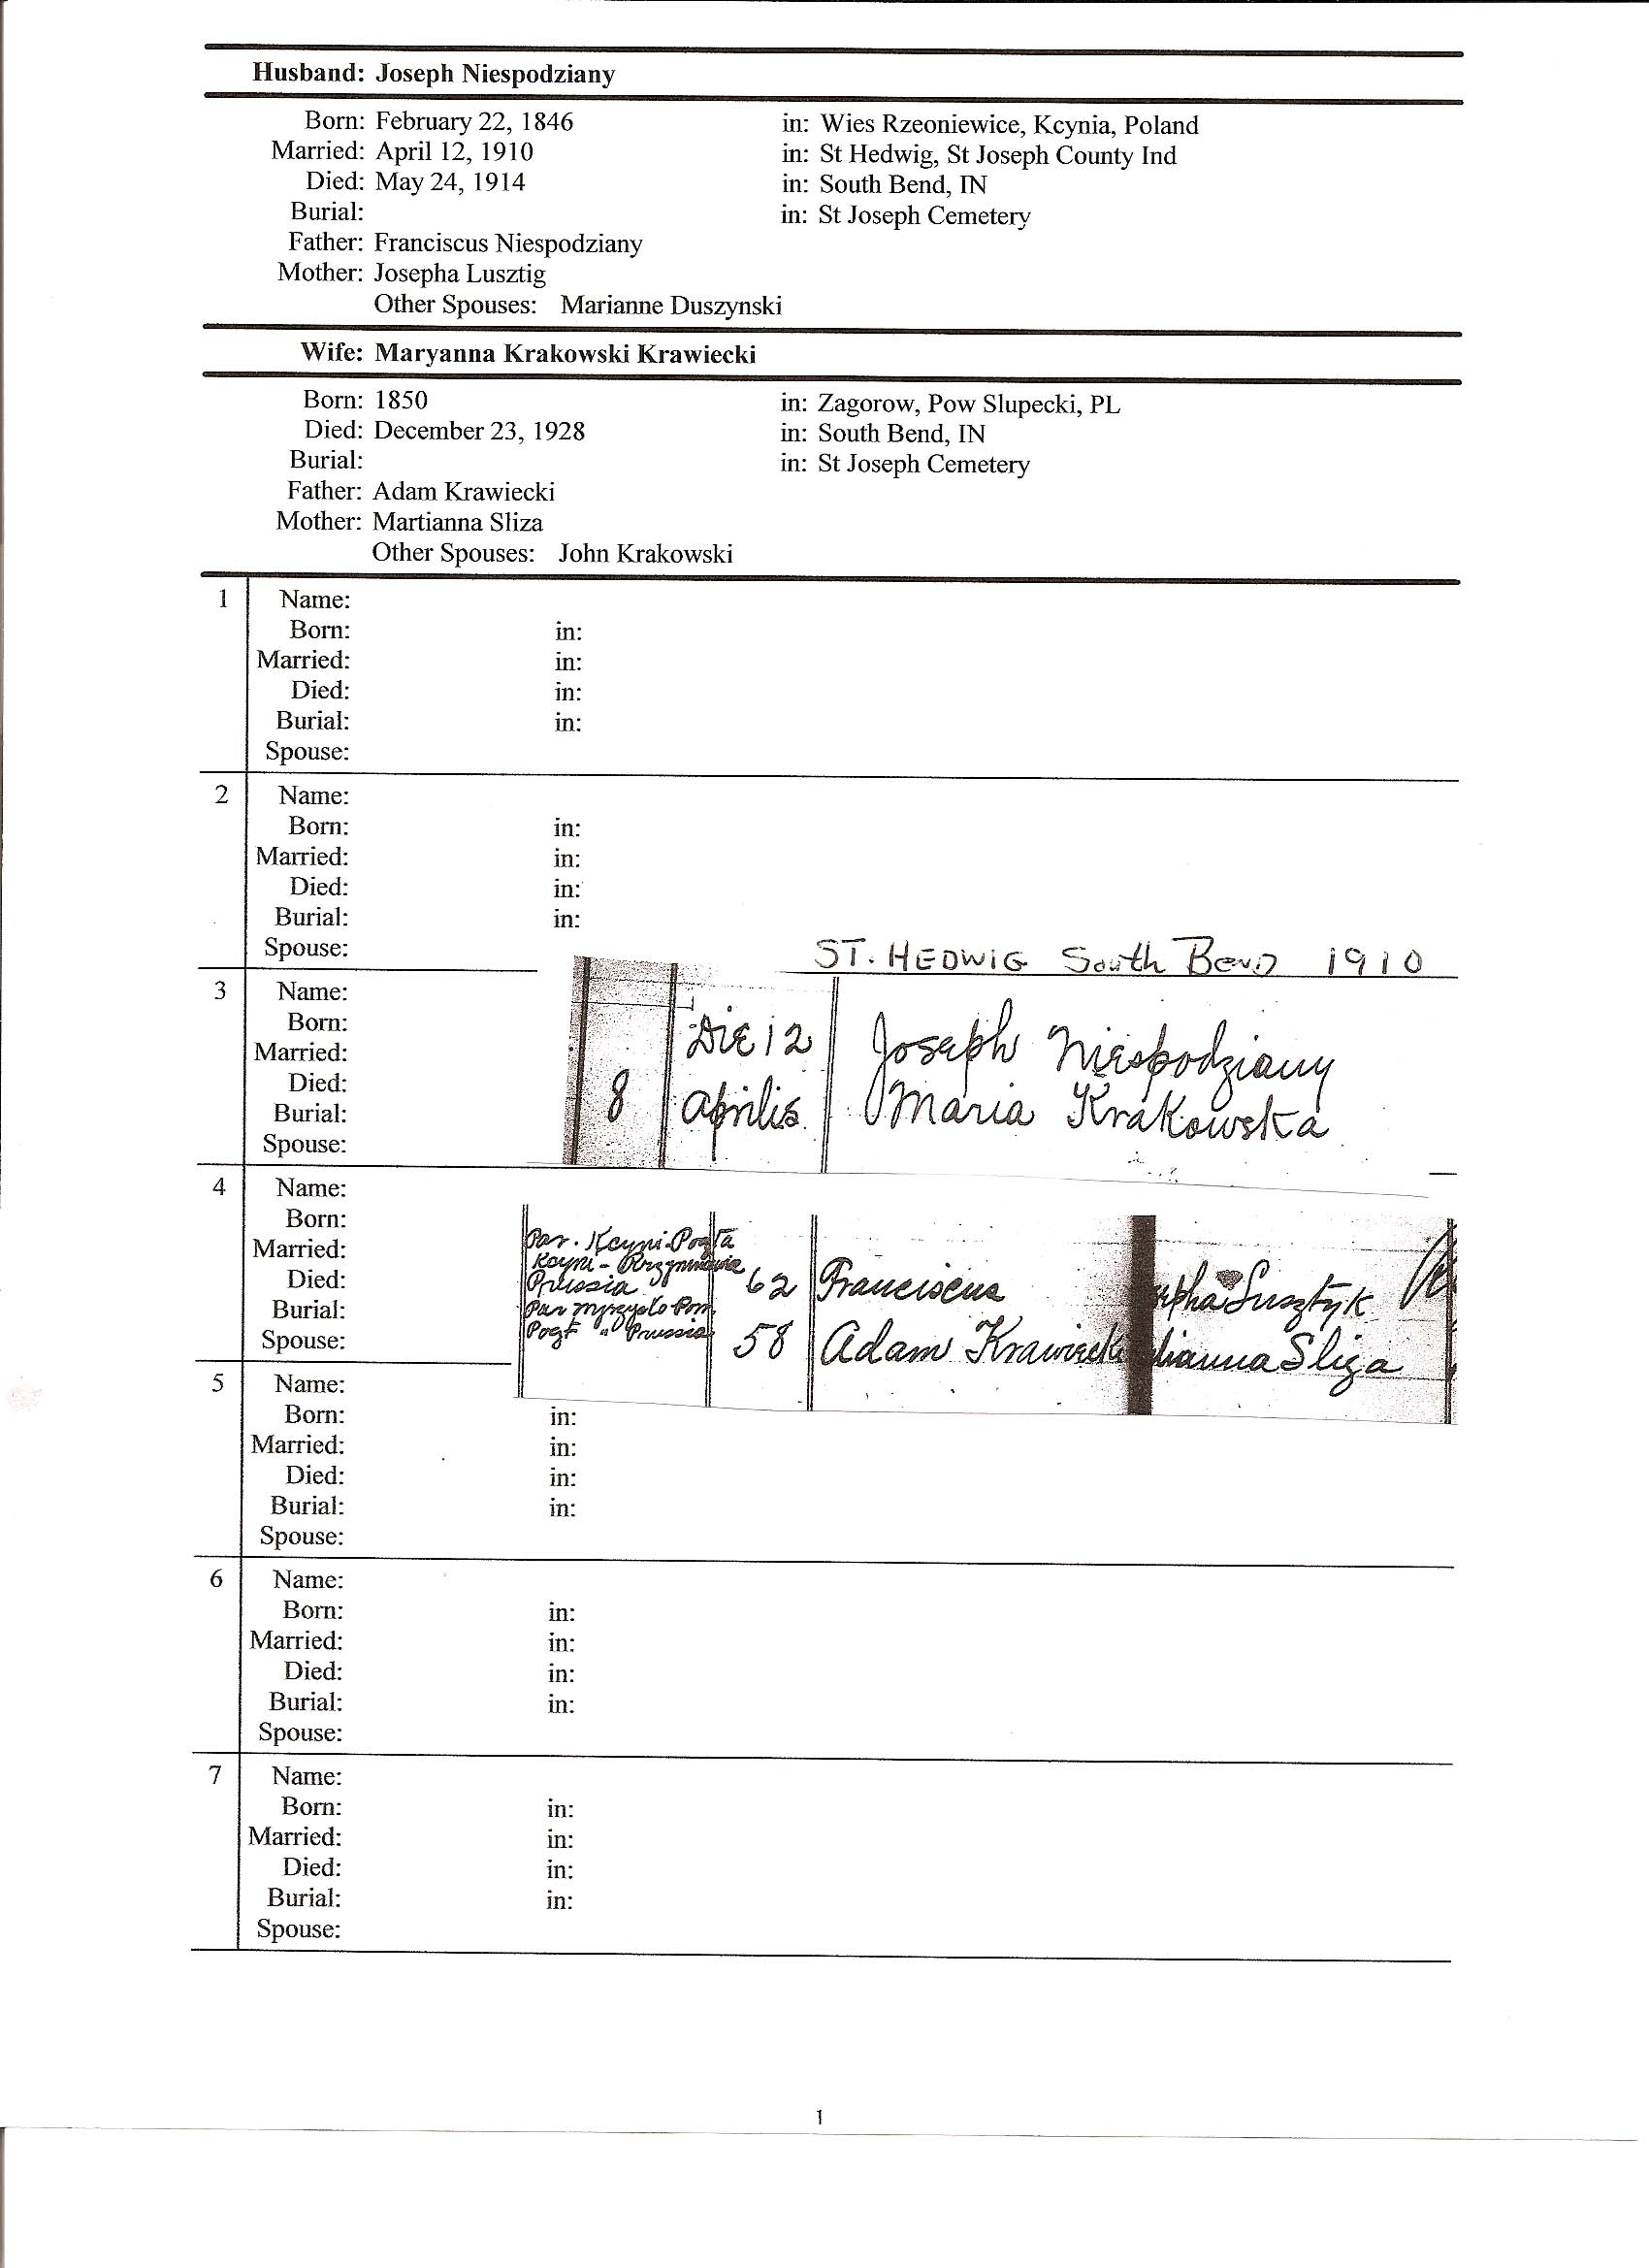 Husband: Joseph Niespodziany
Born: February 22, 1846 in: Wies Rzeoniewice, Kcynia, Poland
Married: April 12, 1910 in: St Hedwig, St Joseph County Ind
Died: May 24, 1914 in: South Bend, IN
Burial: in: St Joseph Cemetery
Father: Franciscus Niespodziany
Mother: Josepha Lusztig
Other Spouses: Marianne Duszynski
Wife: Maryanna Krakowski Krawiecki
Born: 1850 in: Zagorow, Pow Slupecki, PL
Died: December 23, 1928 in: South Bend, IN
Burial: in: St Joseph Cemetery
Father: Adam Krawiecki
Mother: Martianna Sliza
Other Spouses: John Krakowski
1 Name:
Born: in:
Married: in:
Died: in:
Burial: in:
Spouse:
2 Name:
Born: in:
Married: in:
Died: in:
Burial: in:
Spouse:
ST. HEDWIG South Bend 1910
3 Name:
Born:
Married:
Died:
Burial:
Spouse:
Die 12 Joseph Niespodziany
8 Aprilis Maria Krakowska
4 Name:
Born:
Married:
Died:
Burial:
Spouse:
Par. Kcyni Poczta
Kcyni -
Prussia 62 Franciscus Lusztyk
Par
Poczt " Prussia 58 Adam Krawiecki Sliza
5 Name:
Born: in:
Married: in:
Died: in:
Burial: in:
Spouse:
6 Name:
Born: in:
Married: in:
Died: in:
Burial: in:
Spouse:
7 Name:
Born: in:
Married: in:
Died: in:
Burial: in:
Spouse:
1